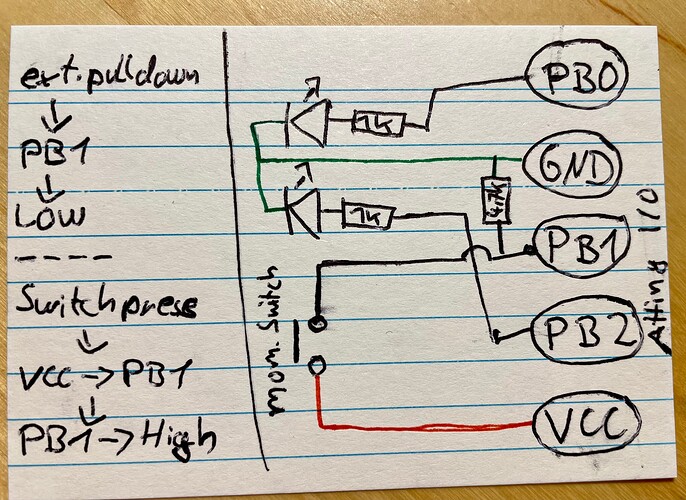 ext. pulldown
PB1
LOW
----
Switch press
VCC → PB1
PB1 → High
PB0
1K
GND
4.7K
1K
PB1
PB2
VCC
mom. Switch
Attiny I/O